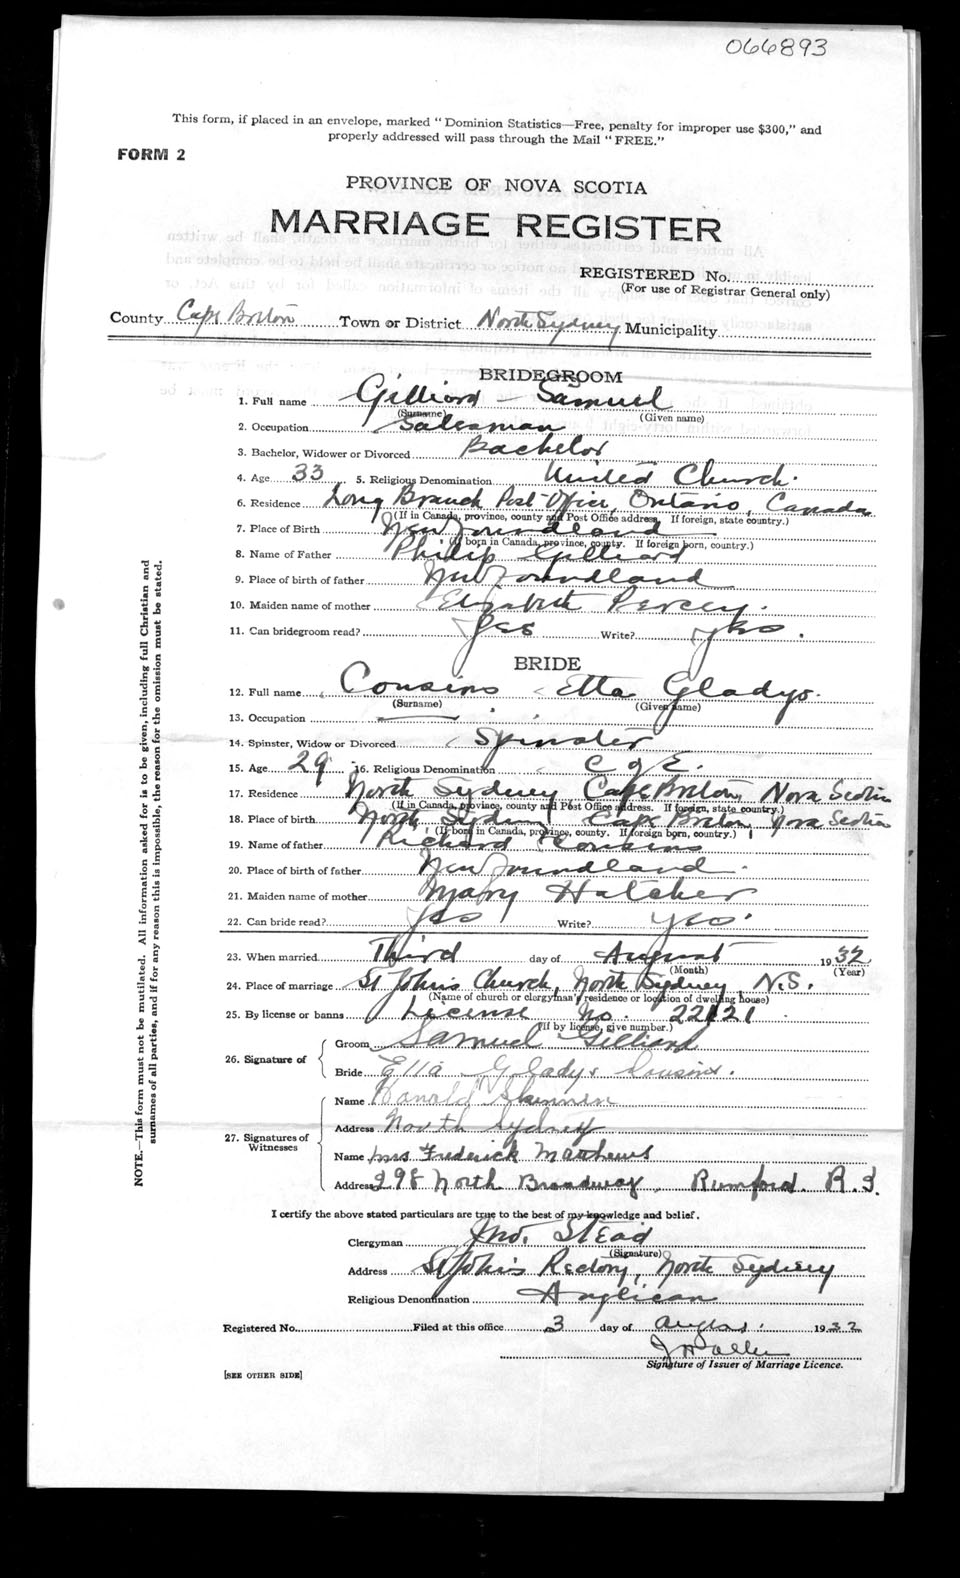 066893
This form, if placed in an envelope, marked " Dominion Statistics—Free, penalty for improper use $300," and
properly addressed will pass through the Mail " FREE."
FORM 2
PROVINCE OF NOVA SCOTIA
MARRIAGE REGISTER
REGISTERED No.
(For use of Registrar General only)
County Cape Breton Town or District North Sydney Municipality
BRIDEGROOM
1. Full name Gilliard Samuel
(Surname) (Given name)
2. Occupation Salesman
3. Bachelor, Widower or Divorced Bachelor
4. Age 33 5. Religious Denomination United Church.
6. Residence Long Branch Post Office, Ontario, Canada
(If in Canada, province, county and Post Office address. If foreign, state country.)
7. Place of Birth Newfoundland
(If born in Canada, province, county. If foreign born, country.)
8. Name of Father Philip Gilliard
9. Place of birth of father Newfoundland
10. Maiden name of mother Elizabeth Percey.
11. Can bridegroom read? Yes Write? Yes.
BRIDE
12. Full name Cousins Etta Gladys.
(Surname) (Given name)
13. Occupation
14. Spinster, Widow or Divorced Spinster
15. Age 29 16. Religious Denomination C of E.
17. Residence North Sydney Cape Breton, Nova Scotia
(If in Canada, province, county and Post Office address. If foreign, state country.)
18. Place of birth North Sydney Cape Breton Nova Scotia
(If born in Canada, province, county. If foreign born, country.)
19. Name of father Richard Cousins
20. Place of birth of father Newfoundland.
21. Maiden name of mother Mary Hatcher
22. Can bride read? Yes Write? Yes.
23. When married Third day of August 1932
(Month) (Year)
24. Place of marriage St John's Church, North Sydney, N.S.
(Name of church or clergyman's residence or location of dwelling house)
25. By license or banns License No. 22121
(If by license, give number.)
26. Signature of
Groom Samuel Gilliard
Bride Etta Gladys Cousins.
27. Signatures of Witnesses
Name Harold Skinner
Address North Sydney
Name Mrs Frederick Matthews
Address 298 North Broadway, Rumford. R.I.
I certify the above stated particulars are true to the best of my knowledge and belief.
Clergyman Jno. Stead
(Signature)
Address St John's Rectory, North Sydney
Religious Denomination Anglican
Registered No. Filed at this office 3 day of August. 1932
Signature of Issuer of Marriage Licence.
[SEE OTHER SIDE]
NOTE.—This form must not be mutilated. All information asked for is to be given, including full Christian and
surnames of all parties, and if for any reason this is impossible, the reason for the omission must be stated.